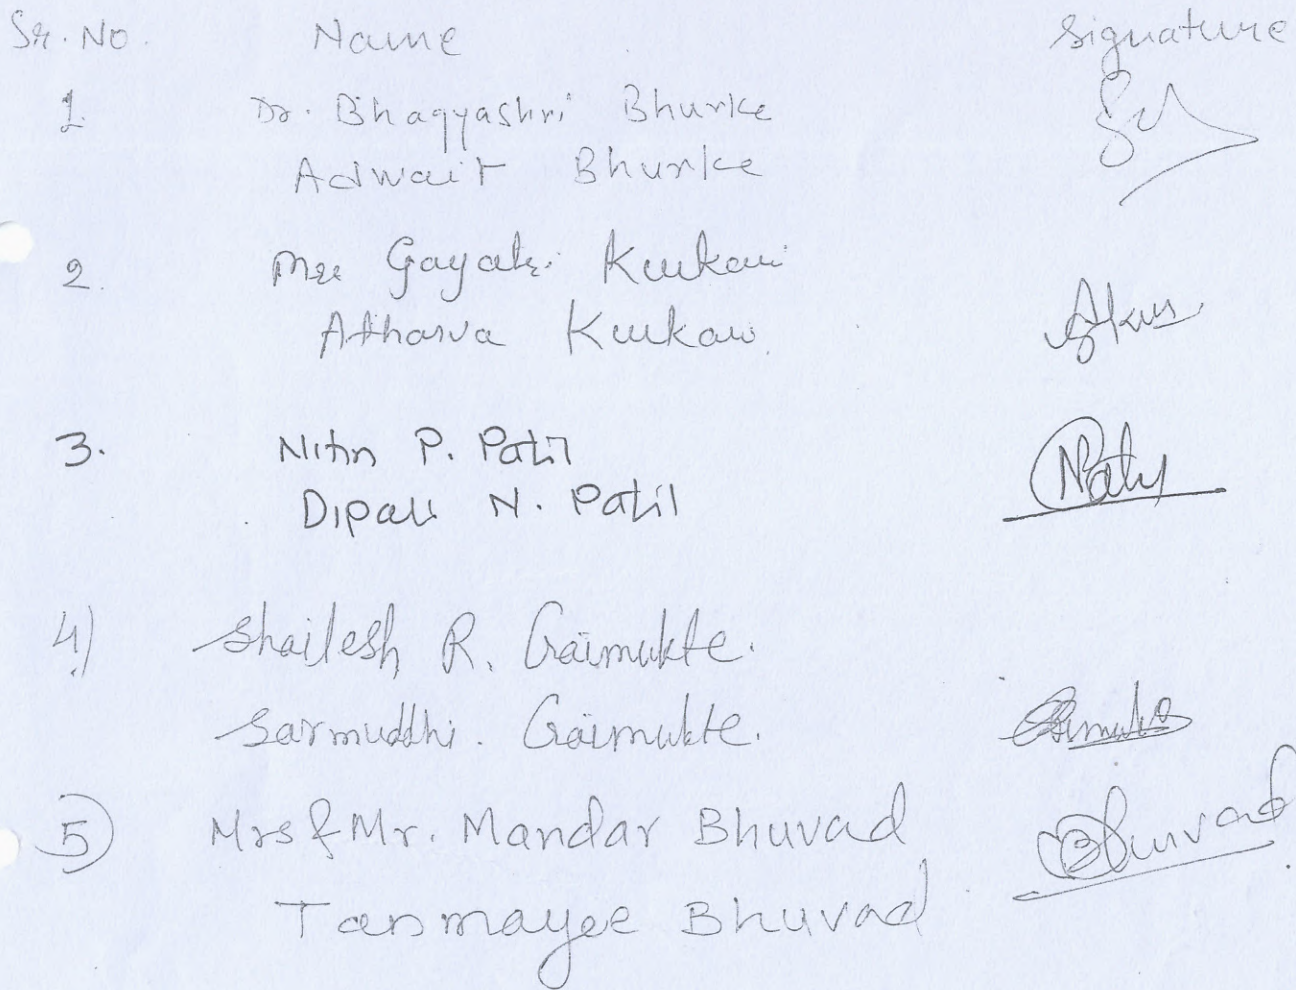 Sr. No. Name Signature
1. Dr. Bhagyashri Bhurke
Adwait Bhurke
2. Mrs Gayatri
Atharva
3. Nitin P. Patil
Dipali N. Patil
4) Shailesh R. Gaimukte.
Sarmuddhi. Gaimukte.
5) Mrs & Mr. Mandar Bhuvad Bhuvad
Tanmayee Bhuvad